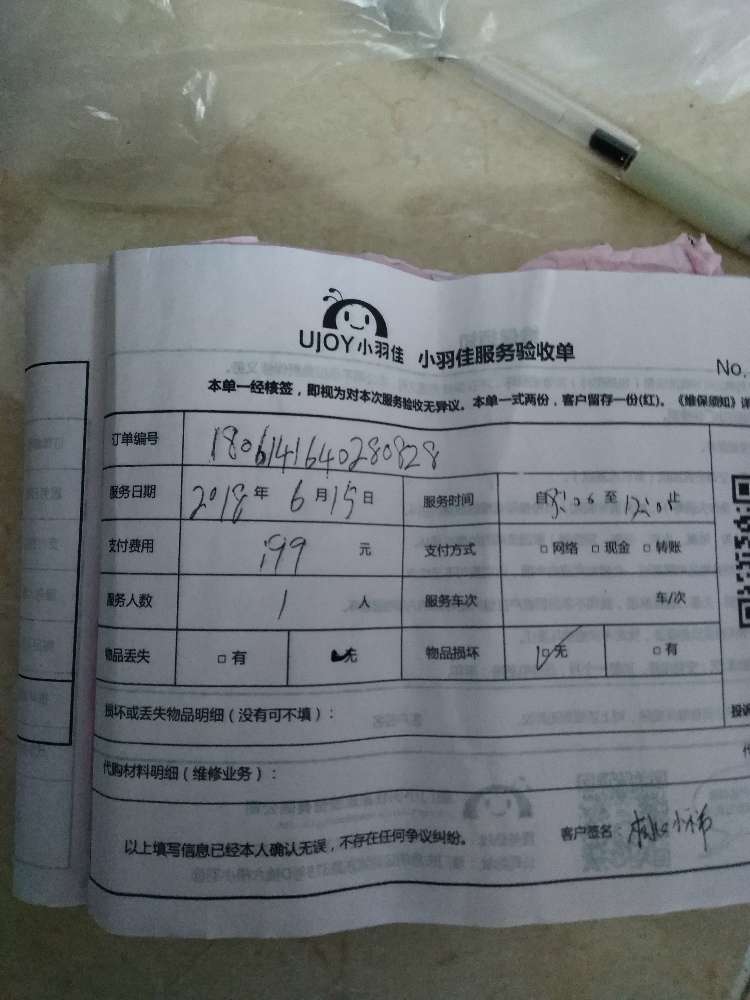 UJOY小羽佳 小羽佳服务验收单
No.
本单一经核签，即视为对本次服务验收无异议。本单一式两份，客户留存一份(红)。《维保须知》详
订单编号 1806141640280828
服务日期 2018年6月15日 服务时间 自8:06至12:06止
支付费用 199元 支付方式 □网络 □现金 □转账
服务人数 1人 服务车次 车/次
物品丢失 □有 ✓无 物品损坏 □无 □有
损坏或丢失物品明细（没有可不填）：
投诉
代购材料明细（维修业务）：
以上填写信息已经本人确认无误，不存在任何争议纠纷。 客户签名：